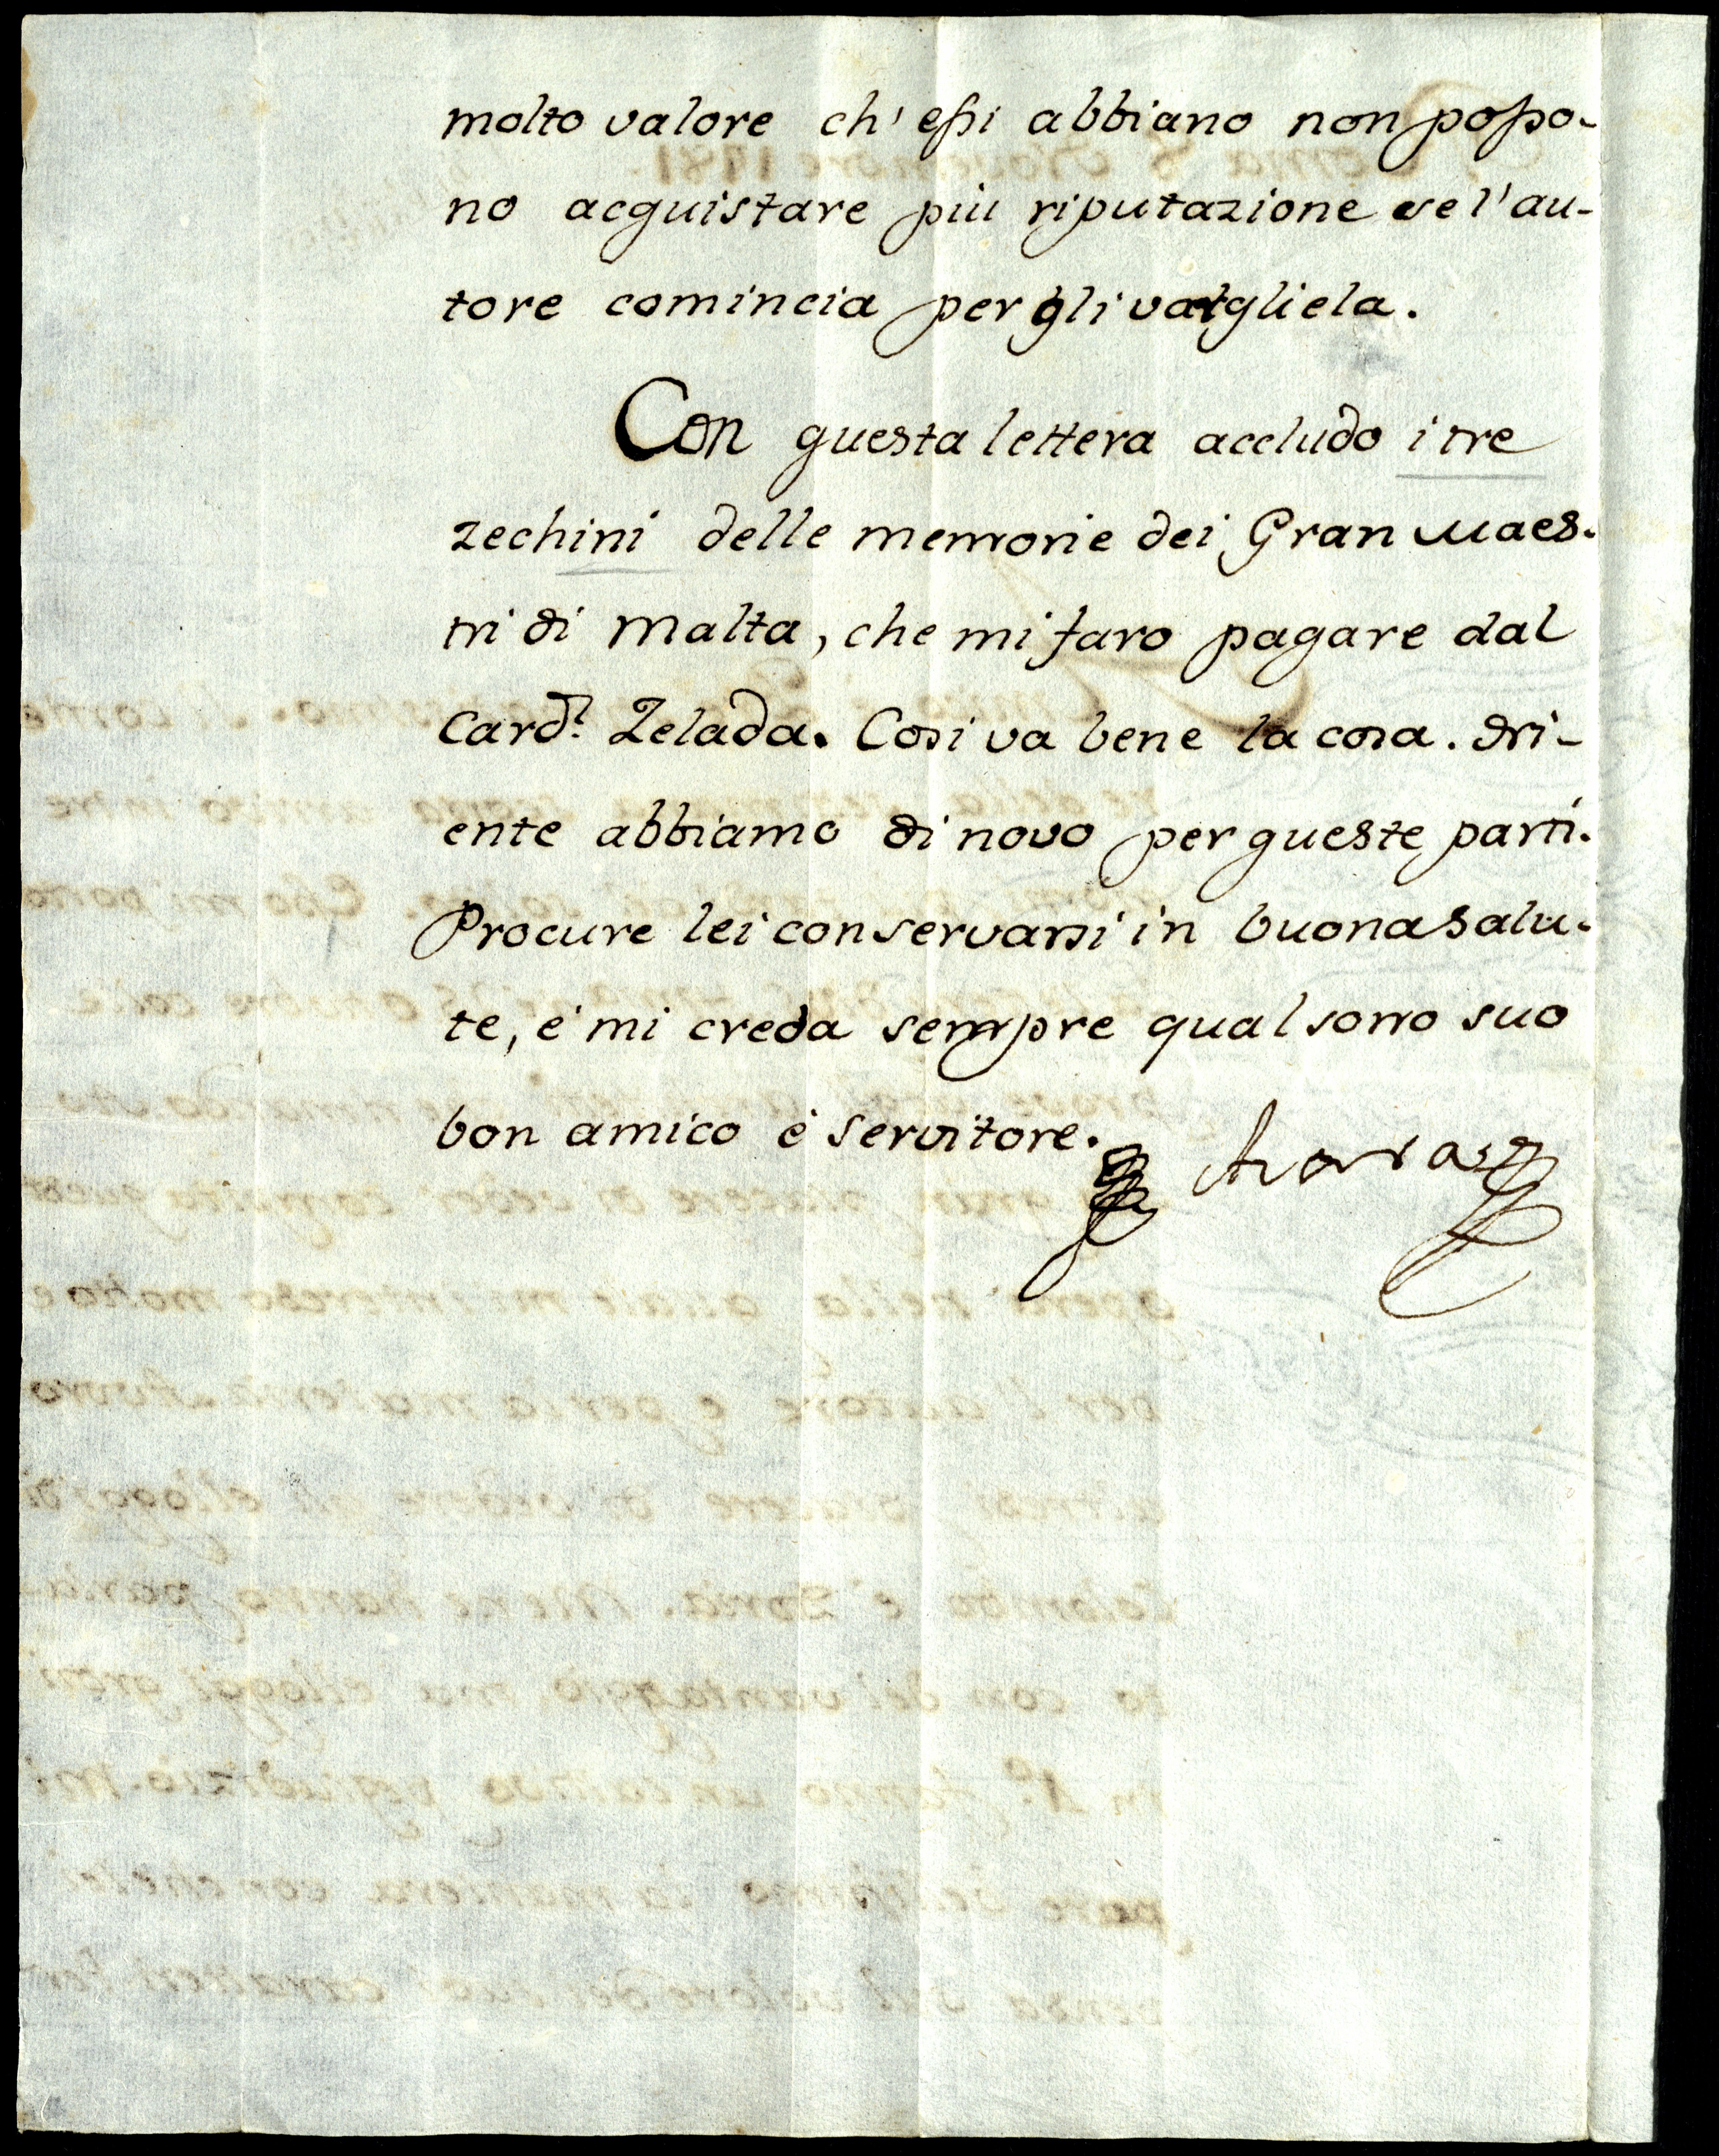 molto valore ch' essi abbiano non posso-
no acquistare più riputazione se l'au-
tore comincia per
Con questa lettera accludo i tre
zechini delle memorie dei Gran Maes-
tri di Malta, che mi faro pagare dal
Card.l Zelada. Cosi va bene la cosa.
ente abbiamo di novo per queste parti.
Procure lei conservarsi in buona salu-
te, é mi creda sempre qual sono suo
bon amico è servitore.